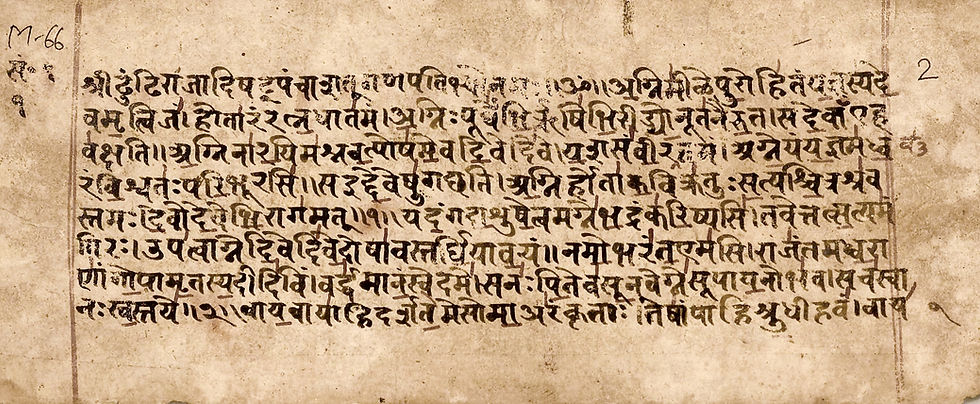 M-66
2
श्रीढुंढिराजादिषट्पंचाशत्गणपति ॥ॐ॥अग्निमीळेपुरोहितंयज्ञस्यदे
वमृत्विजं।होतारंरत्नधातमं।अग्निःपूर्वेभिर्ऋषिभिरीड्योनूतनैरुत।सदेवाँएह
वक्षति॥अग्निनारयिमश्नवत्पोषमेवदिवेदिवे।यशसंवीरवत्तमं।अग्नेयंयज्ञमध्व
रंविश्वतःपरिभूरसि॥सइद्देवेषुगछति।अग्निर्होताकविक्रतुःसत्यश्चित्रश्रव
स्तमः।देवोदेवेभिरागमत्॥१॥यदंगदाशुषेत्वमग्नेभद्रंकरिष्यसि।तवेत्तत्सत्यमं
गिरः।उपत्वाग्नेदिवेदिवेदोषावस्तर्धियावयं॥नमोभरंतएमसि।राजंतमध्वरा
णांगोपामृतस्यदीदिविं।वर्द्धमानंस्वेदमे।सनःपितेवसूनवेग्नेसूपायनोभव।सचस्वा
नःस्वस्तये॥२॥वायवायाहिदर्शतेमेसोमाअरंकृताः।तेषांपाहिश्रुधीहवं।वाय